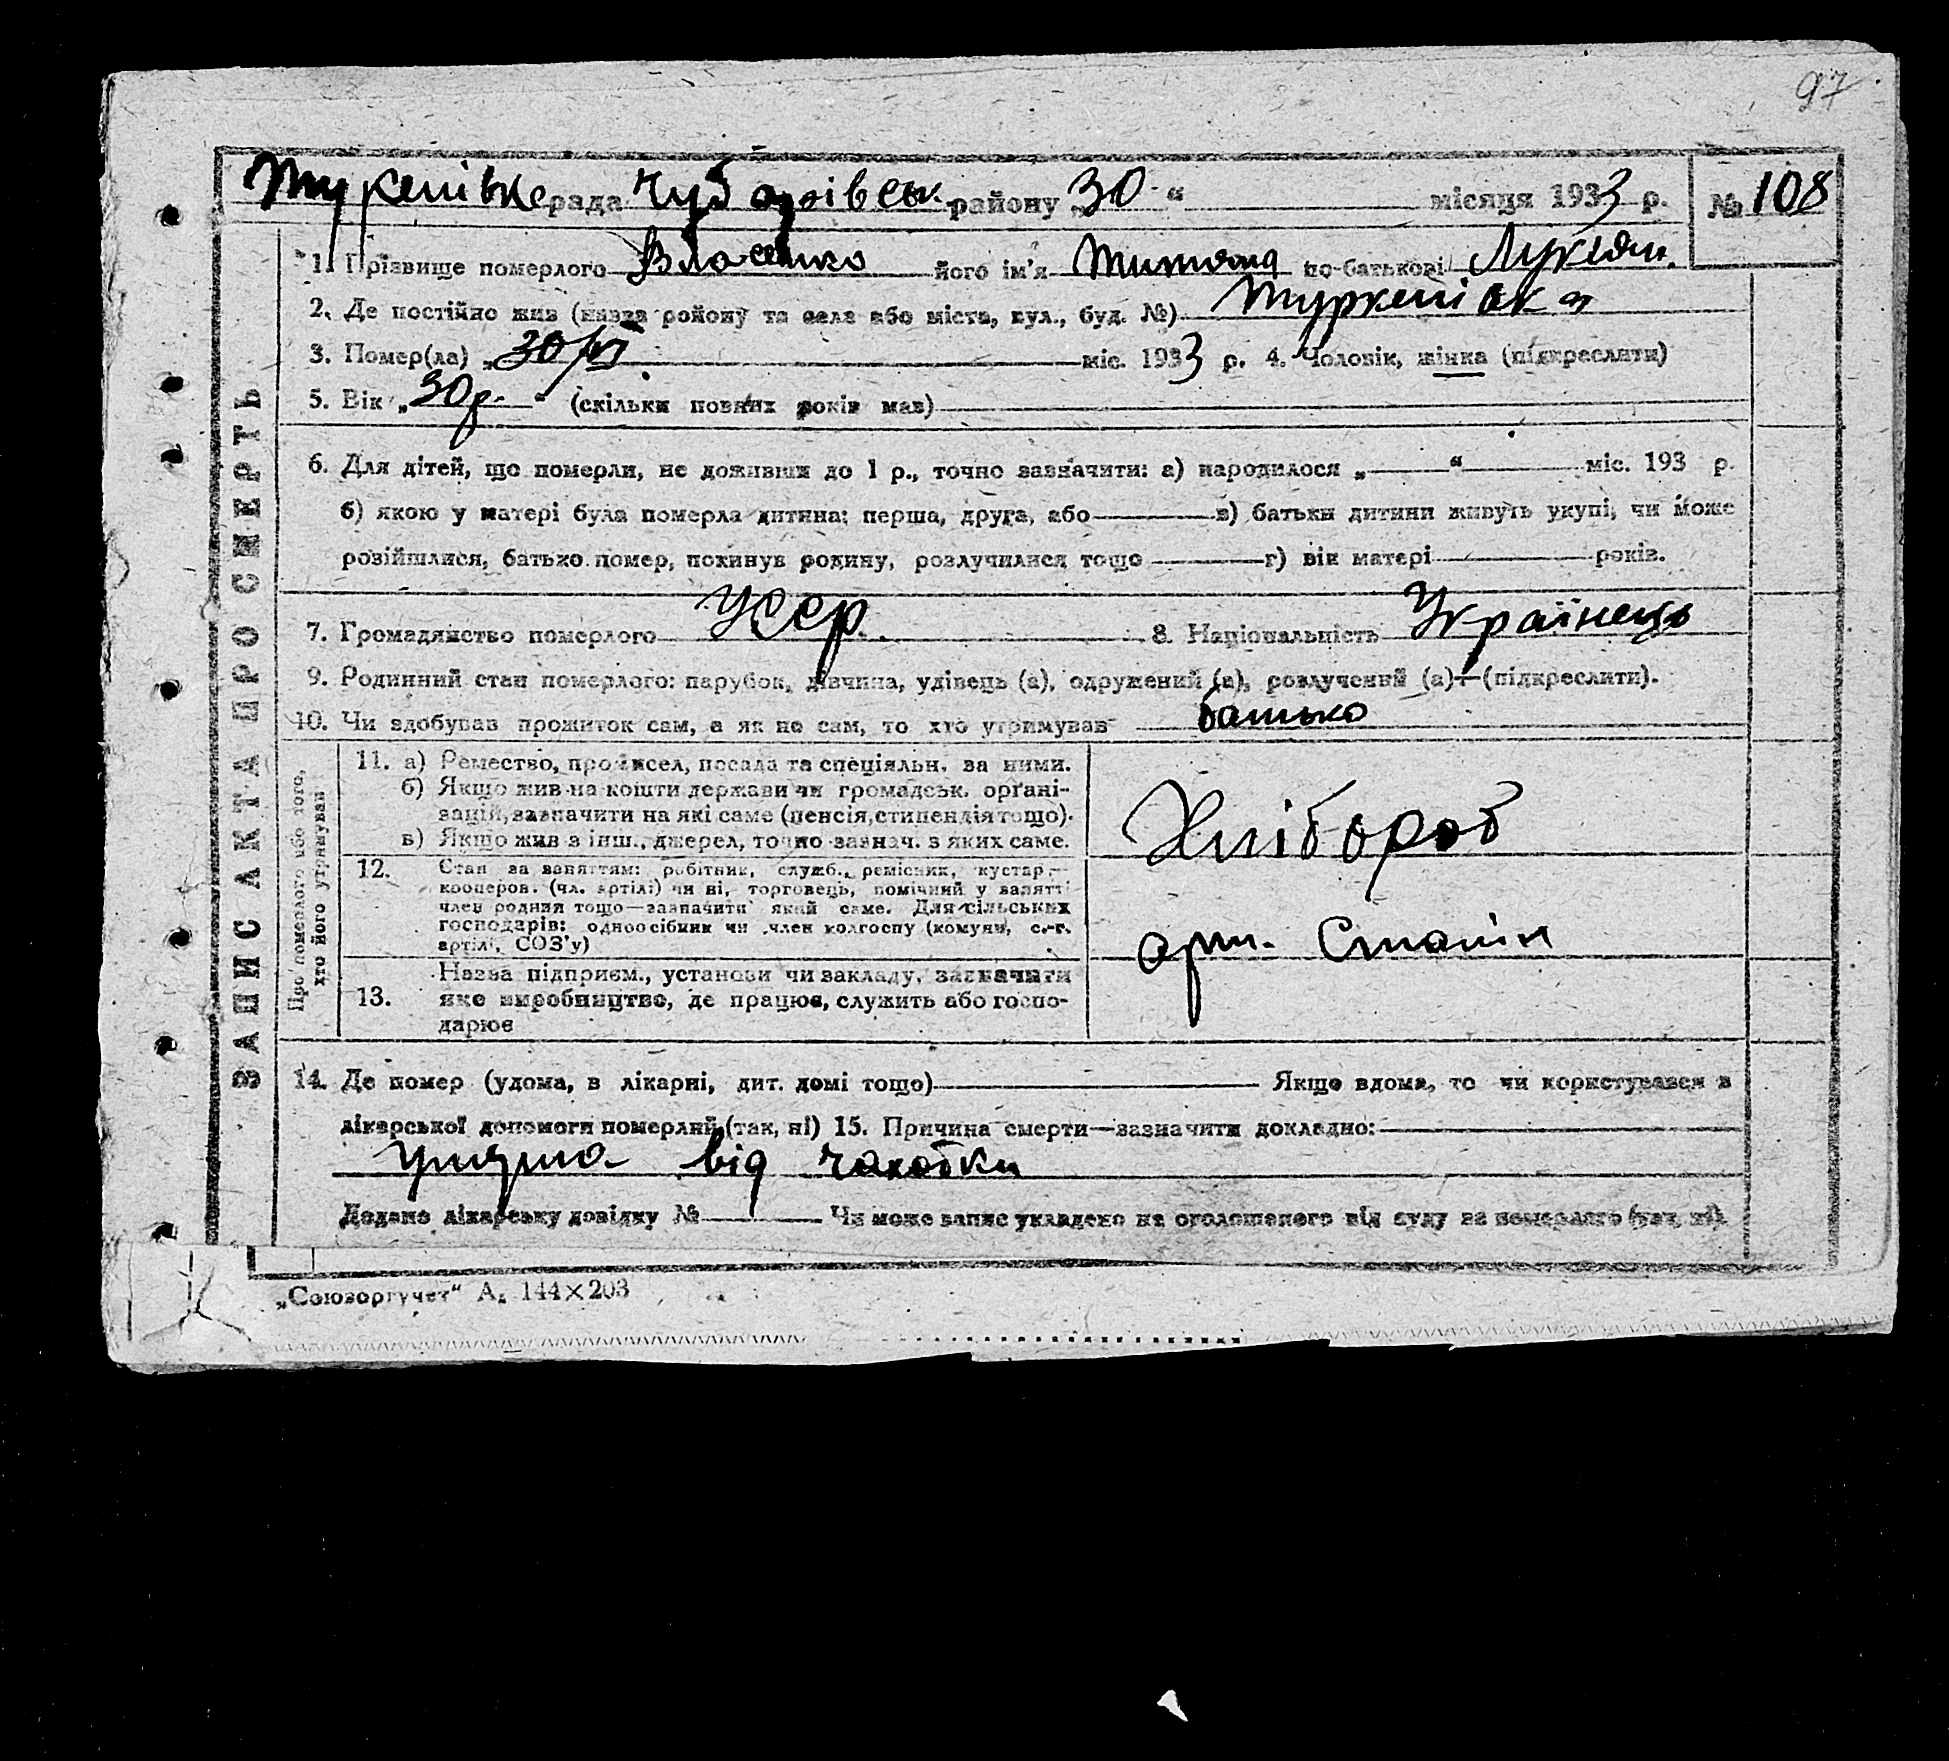 97
Туркенівс рада Чубарівськ району „30“ місяця 1933 р. № 108
ЗАПИС АКТА ПРО СМЕРТЬ
1. Прізвище померлого Власенко його ім'я Титяна по-батькові Лукіян.
2. Де постійно жив (назва району та села або міста, вул., буд. №) Туркенівка
3. Помер(ла) „30/VI міс. 1933 р. 4. Чоловік, жінка (підкреслити)
5. Вік „30р.“ (скільки повних років мав)
6. Для дітей, що померли, не доживши до 1 р., точно зазначити: а) народилося „ “ міс. 193 р.
б) якою у матері була померла дитина: перша, друга, або в) батьки дитини живуть укупі, чи може
розійшлися, батько помер, покинув родину, розлучилися тощо г) вік матері років.
7. Громадянство померлого УССР 8. Національність Українець
9. Родинний стан померлого: парубок, дівчина, удівець (а), одружений (а), розлучений (а)—(підкреслити).
10. Чи здобував прожиток сам, а як не сам, то хто утримував батько
Про померлого або того, хто його утримував
11. а) Ремество, промисел, посада та спеціяльн. за ними.
б) Якщо жив на кошти держави чи громадськ. орґані-
зацій, зазначити на які саме (пенсія, стипендія тощо).
в) Якщо жив з інш., джерел, точно зазнач. з яких саме.
Хлібороб
12. Стан за заняттям: робітник, служб., ремісник, кустар,—
кооперов. (чл. артілі) чи ні, торговець, помічний у занятті
член родини тощо—зазначити який саме. Для сільських
господарів: одноосібник чи член колгоспу (комуни, с.-г.
артілі, СОЗ'у)
арт. Сталін
Назва підприєм., установи чи закладу, зазначити
13. яке виробництво, де працює, служить або госпо-
дарює
14. Де помер (удома, в лікарні, дит. домі тощо) Якщо вдома, то чи користувався з
лікарської допомоги померлий (так, ні) 15. Причина смерти—зазначити докладно:
від чахотки
Додано лікарську довідку № Чи може запис укладено на оголошеного від суду за померлого (так, ні).
„Союзоргучет“ А. 144×203